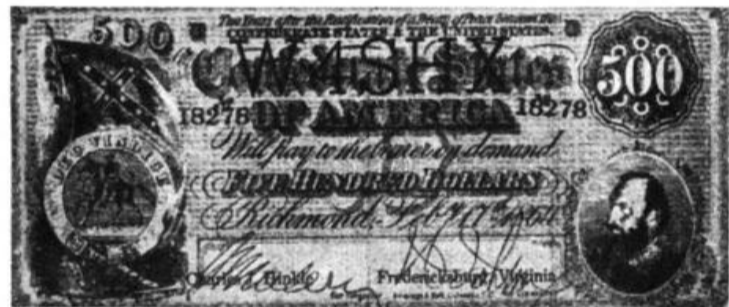 Two Years after the Ratification of a Treaty of Peace between the
CONFEDERATE STATES & THE UNITED STATES.
500
W4SHX
Confederate States
500
18278 OF AMERICA 18278
Will pay to the bearer on demand
FIVE HUNDRED DOLLARS
Richmond Feb 17th 1864
DEO VINDICE
Charles J. Hinkle Fredericksburg, Virginia